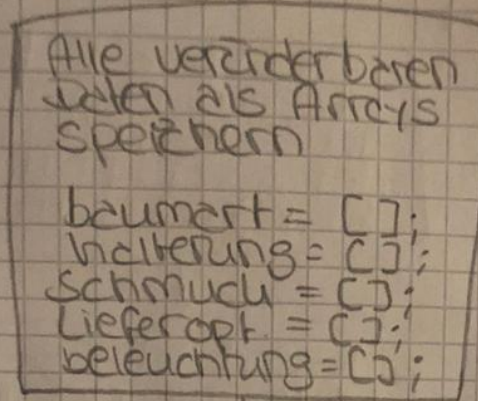 Alle veränderbaren
Daten als Arrays
speichern
baumart = [];
halterung = [];
schmuck = [];
Lieferopt. = [];
beleuchtung = [];